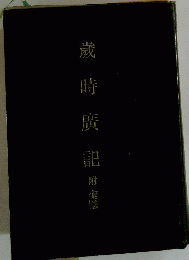 歲時廣記 附